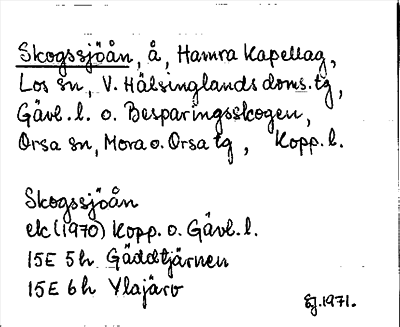 Skogssjöån, å, Hamra Kapellag,
Los sn, V. Hälsinglands doms.tg,
Gävl. l. o. Besparingsskogen,
Orsa sn, Mora o. Orsa tg, Kopp. l.
Skogssjöån
ek (1970) Kopp. o. Gävl. l.
15E 5h Gäddtjärnen
15E 6h Ylajärv
EJ. 1971.